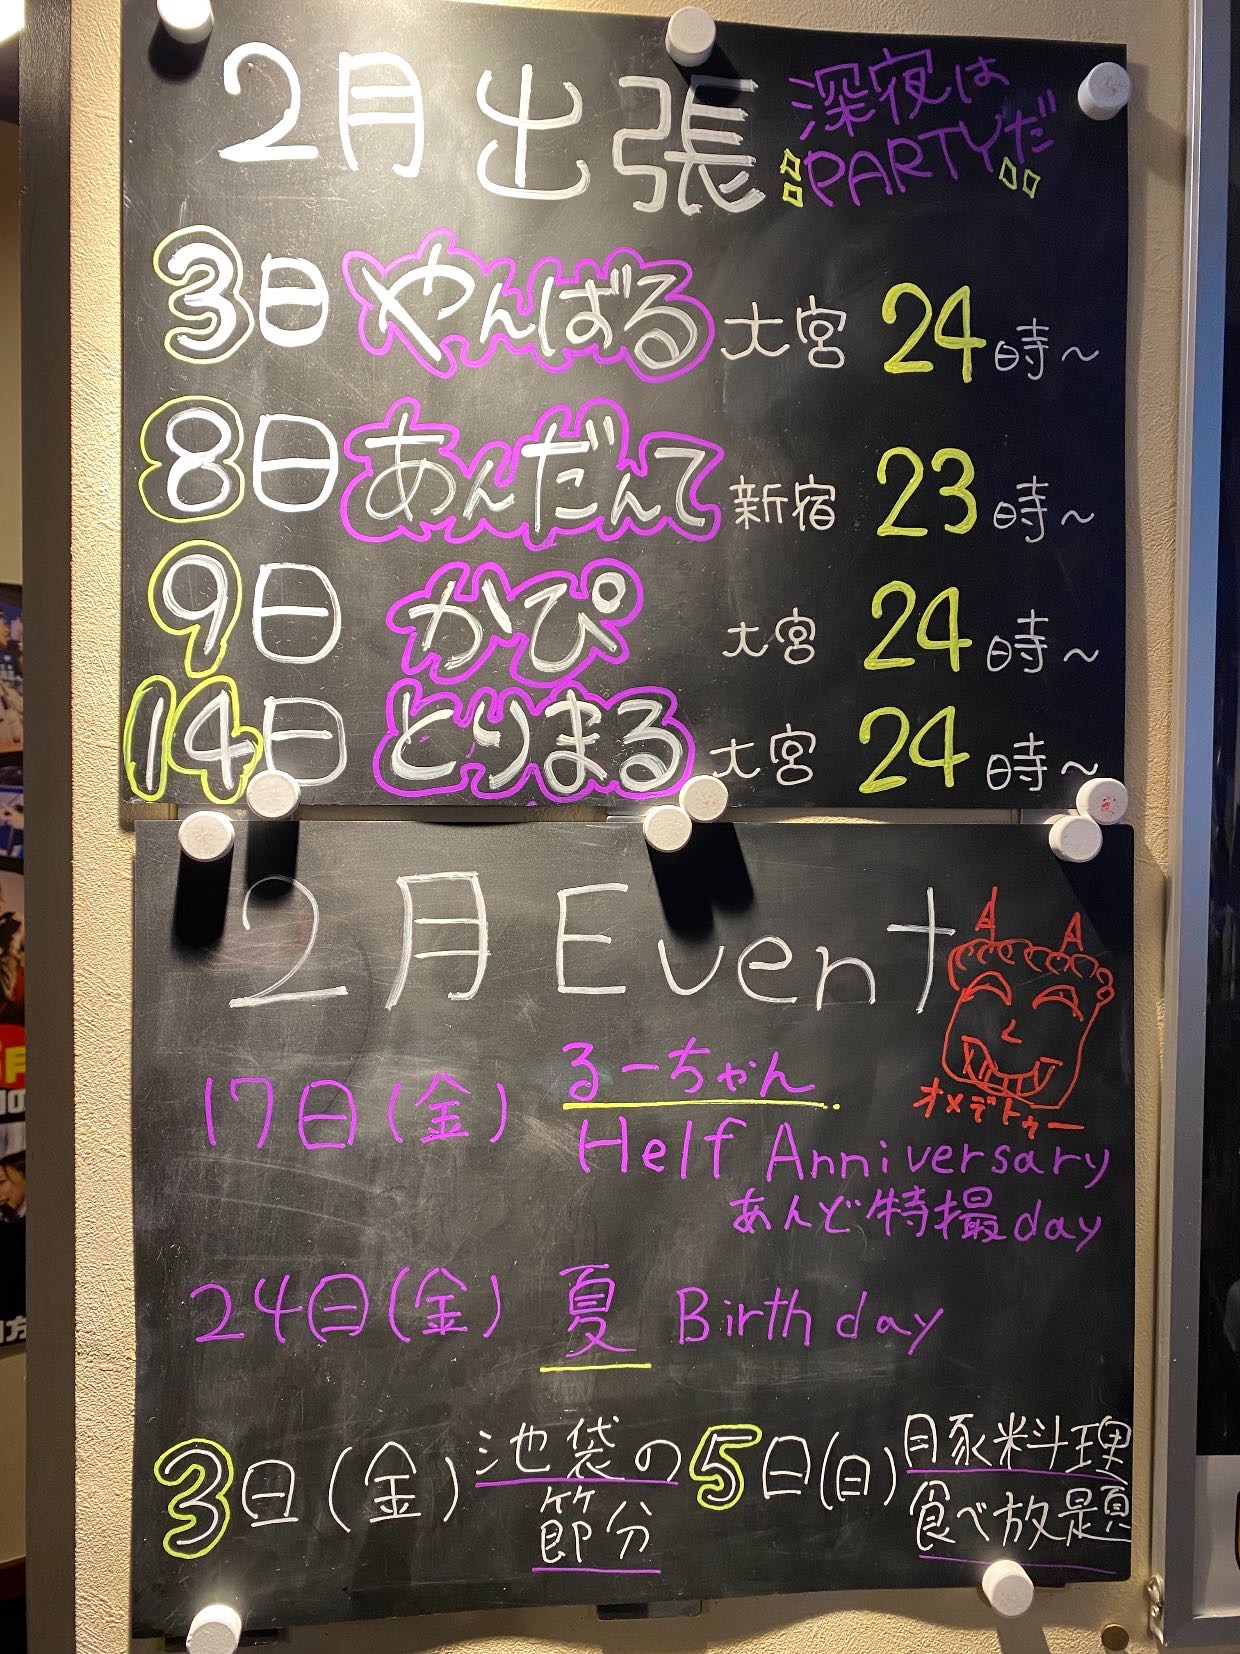 2月出張
深夜は
PARTYだ
3日 やんばる 大宮 24時~
8日 あんだんて 新宿 23時~
9日 かぴ 大宮 24時~
14日 とりまる 大宮 24時~
2月Event
オメデトゥー
17日(金) るーちゃん
Helf Anniversary
あんど特撮day
24日(金) 夏 Birthday
3日(金) 池袋の
節分
5日(日) 豚料理
食べ放題